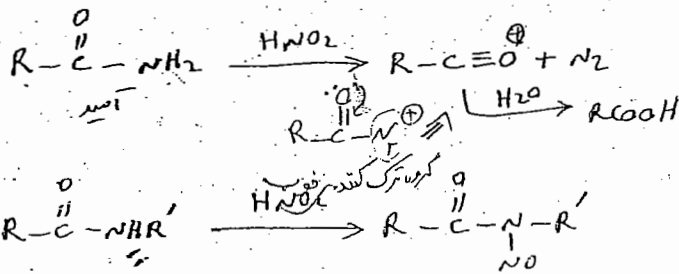 R-C(=O)-NH2 → HNO2 → R-C≡O⊕ + N2
آمید
H2O → RCOOH
R-C(=O)-N2⊕
گروه ترک کننده خوب
R-C(=O)-NHR' → HNO2 → R-C(=O)-N(NO)-R'